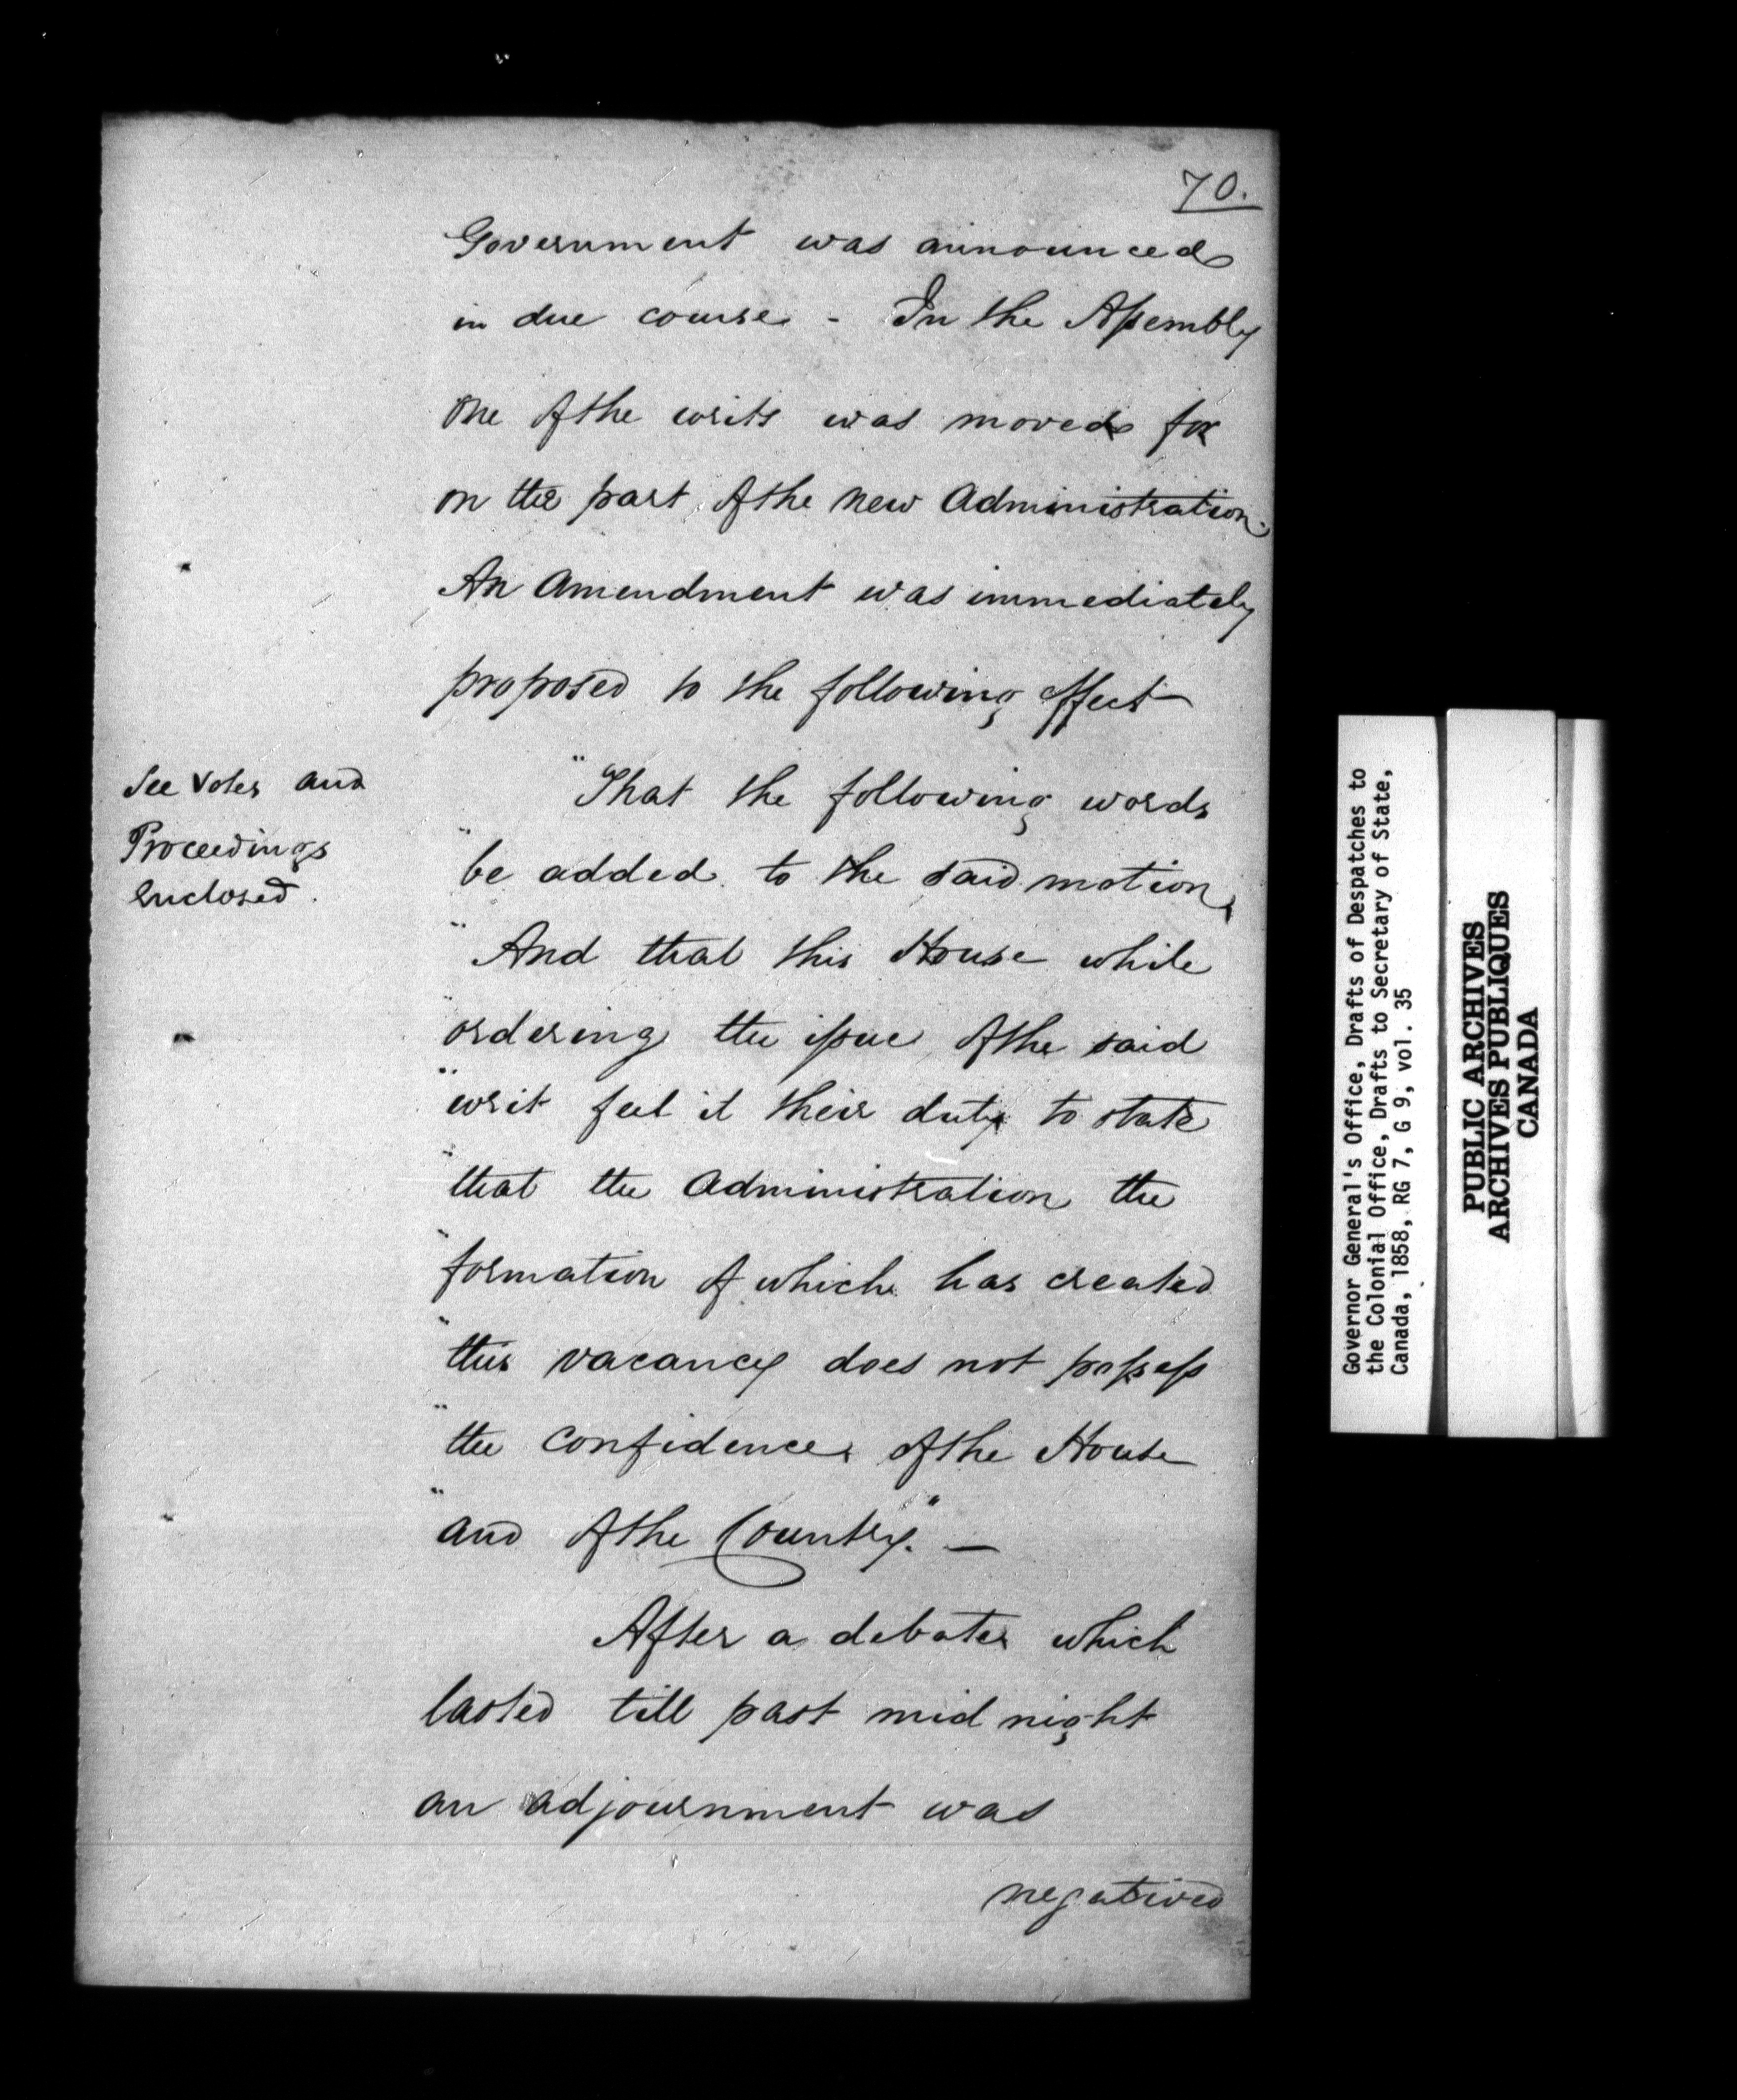 70.
Government was announced
in due course - In the Assembly
One of the writs was moved for
on the part of the new Administration.
An Amendment was immediately
proposed to the following effect
"That the following words
"be added to the said motion,
"And that this House while
"ordering the issue of the said
"writ feel it their duty to state
"that the Administration the
"formation of which has created
"this vacancy does not possess
"the confidence of the House
"and of the Country." —
After a debate which
lasted till past mid night
an adjournment was
negatived
See Votes and
Proceedings
enclosed.
Governor General's Office, Drafts of Despatches to
the Colonial Office, Drafts to Secretary of State,
Canada, 1858, RG 7, G 9, vol. 35
PUBLIC ARCHIVES
ARCHIVES PUBLIQUES
CANADA